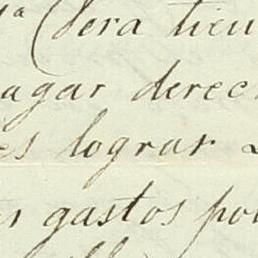 (sera tieu
agar derec
es lograr
gastos por